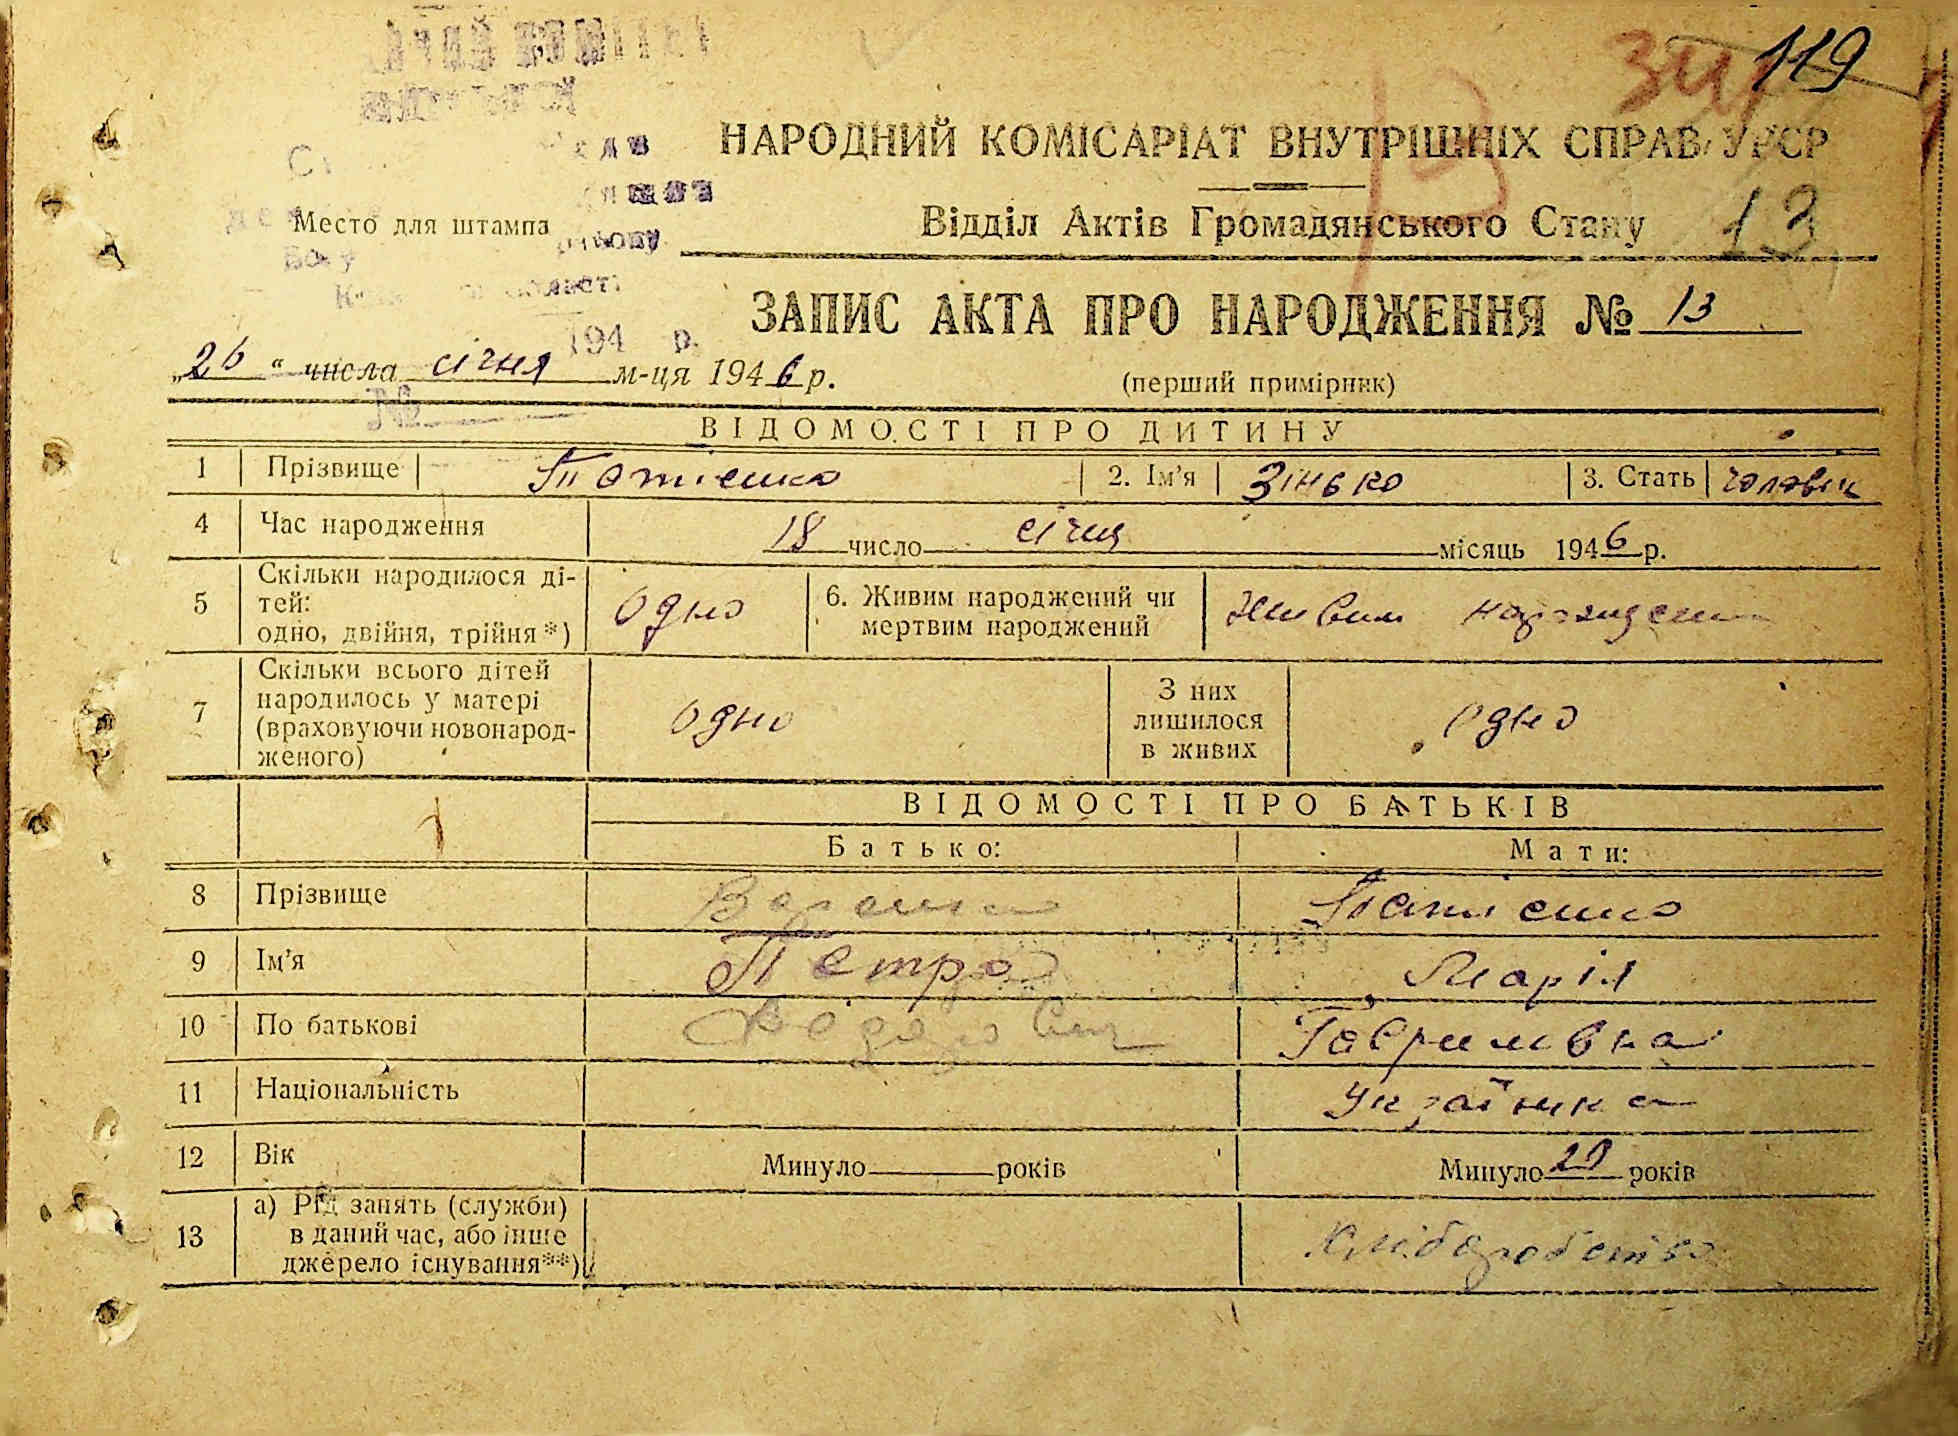 119
13
НАРОДНИЙ КОМІСАРІАТ ВНУТРІШНІХ СПРАВ УРСР
Место для штампа
Відділ Актів Громадянського Стану 13
ЗАПИС АКТА ПРО НАРОДЖЕННЯ № 13
194 р.
„26“ числа січня м-ця 1946 р.
(перший примірник)
№
ВІДОМОСТІ ПРО ДИТИНУ
1 Прізвище 2. Ім’я Зінько 3. Стать чоловіч
4 Час народження 18 число січня місяць 1946 р.
5 Скільки народилося ді-
тей:
одно, двійня, трійня*) Одно 6. Живим народжений чи
мертвим народжений Живим
7 Скільки всього дітей
народилось у матері
(враховуючи новонарод-
женого) одно З них
лишилося
в живих одно
ВІДОМОСТІ ПРО БАТЬКІВ
Батько: Мати:
8 Прізвище
9 Ім’я Петро Марія
10 По батькові Гаврилівна
11 Національність Українка
12 Вік Минуло років Минуло 29 років
13 а) Рід занять (служби)
в даний час, або інше
джерело існування**) хліборобство